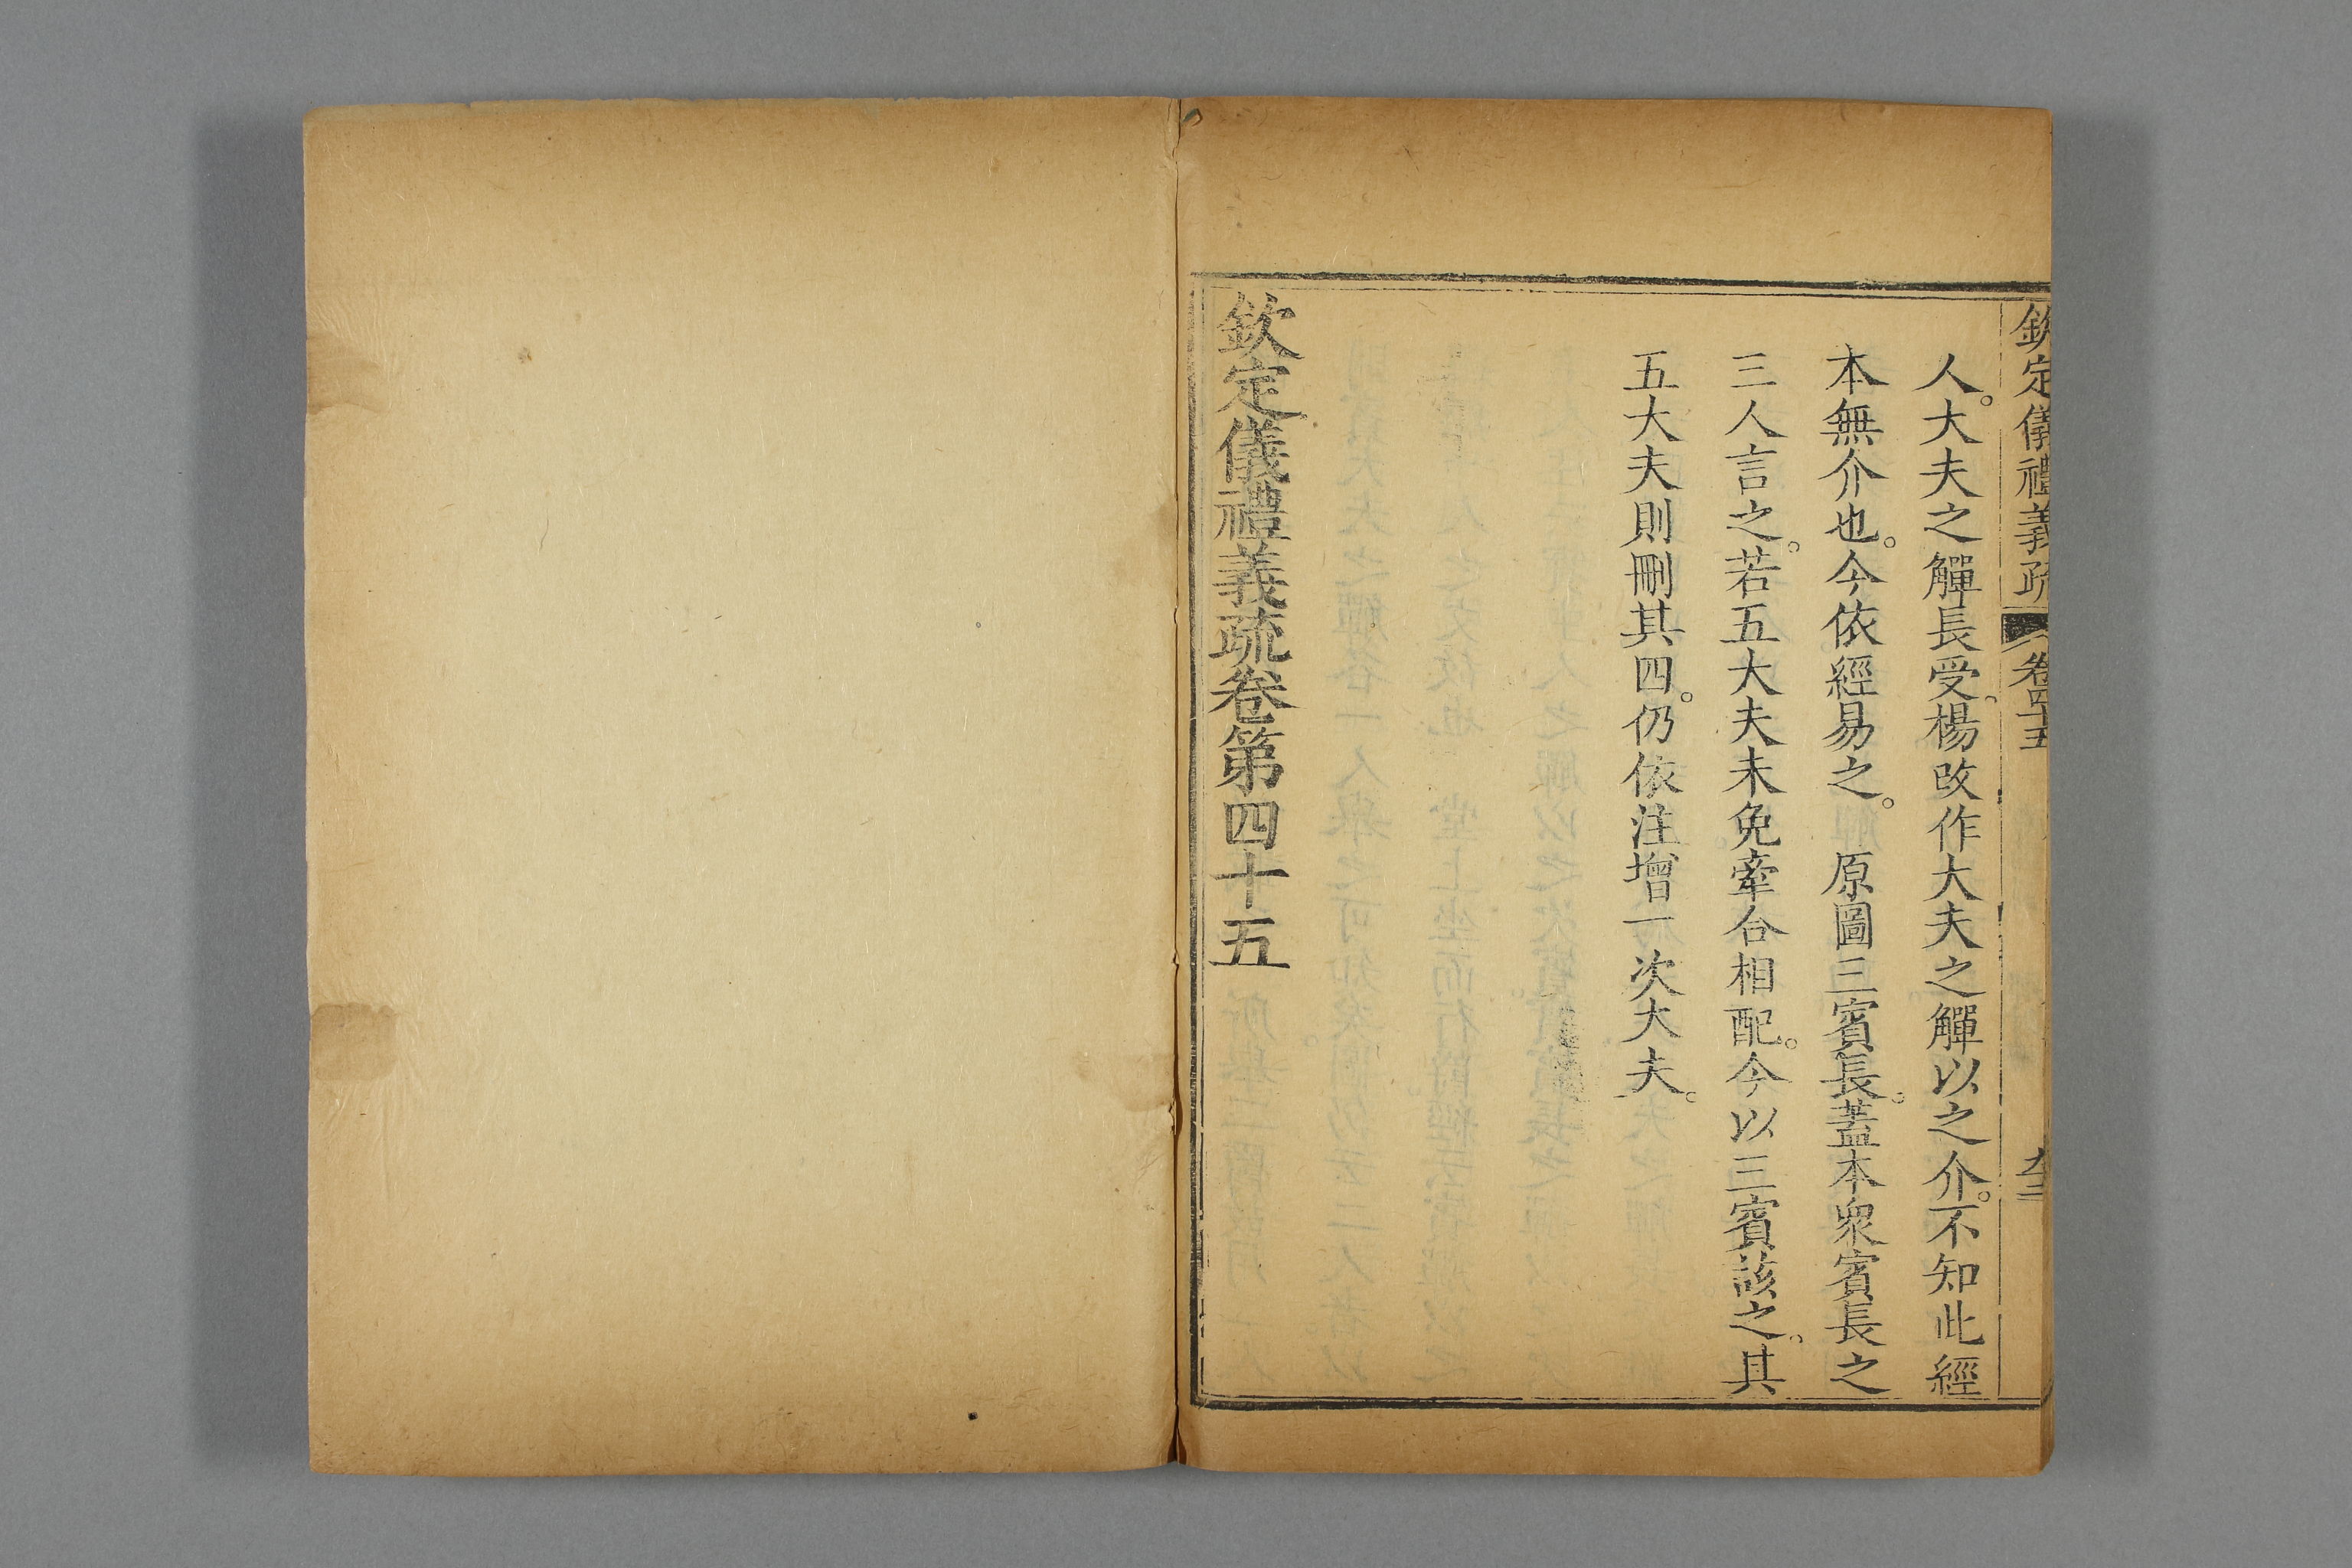 欽定儀禮義疏 卷四十五
人。大夫之觶長受。楊改作大夫之觶以之介。不知此經
本無介也。今依經易之。 原圖三賓長。蓋本衆賓長之
三人言之。若五大夫未免牽合相配。今以三賓該之。其
五大夫則刪其四。仍依注增一次大夫。
欽定儀禮義疏卷第四十五